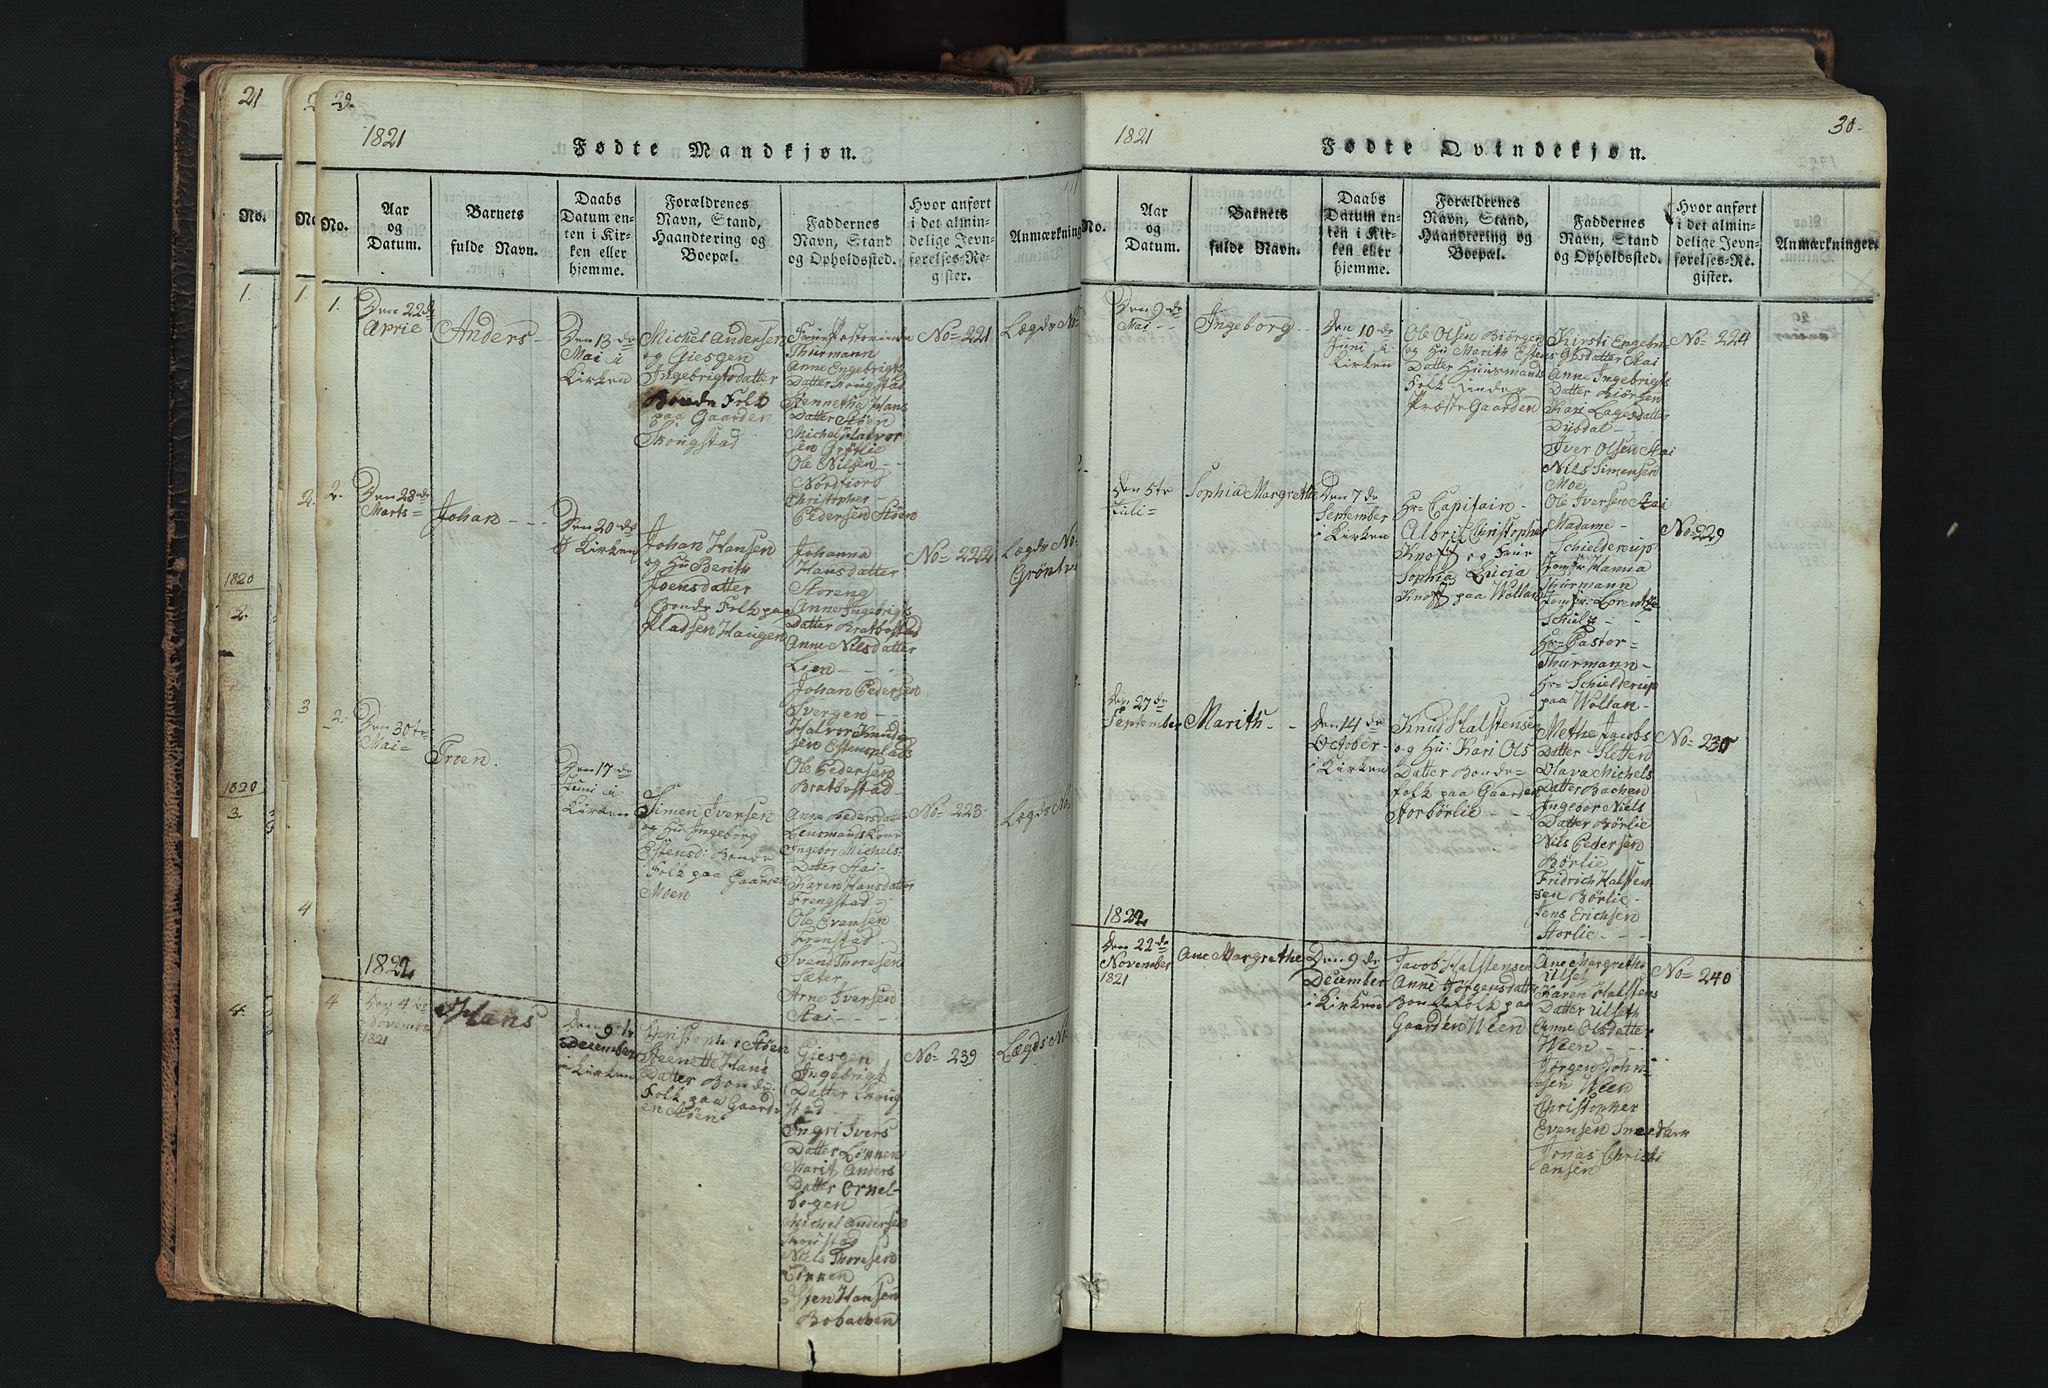 21
29.
1821
Fødte Mandkjøn.
No.
No.
Aar
og
Datum.
Barnets
fulde Navn.
Daabs
Datum en-
ten i Kir-
ken eller
hjemme.
Forældrenes
Navn, Stand,
Haandtering og
Boepæl.
Faddernes
Navn, Stand
og Opholdssted.
Hvor anført
i det almin-
delige Jevn-
førelses-Re-
gister.
Anmærkning
1.
1.
1.
Den 22de
April
Anders
Den 13de
Mai i
Kirken
Michel Andersen
og Giesgen
Ingebrigtsdatter
Bonde Folk
paa Gaarden
Skougstad
Frue Pastorinde
Thurmann
Anne Engebrigts
Datter Skougstad
Stennethe Hans
Datter Støen
Michel Halvor
sen Grøtlie
Ole Nilsen
Nordfiord
Christopher
Pedersen Støen
No 221
Lægds No
2.
2.
Den 28de
Marts
Johan
Den 20de
i Kirken
Johan Hansen
og Hu Berith
Joensdatter
Bonde Folk paa
Pladsen Haugen
Johanna
Hansdatter
Storeng
Anne Ingebrigts
Datter Bratbostad
Anne Nilsdatter
Lien
Johan Pedersen
Svergen
Halvor Knud
sen Estensplads
Ole Pedersen
Bratbostad
No 222
Lægds No
1820
2.
3
2.
Den 30te
Mai
Troen.
Den 17de
Juni i
Kirken
Simen Iversen
og Hu Ingeborg
Estensd: Bonde
Folk paa Gaarden
Moen
Anne Pedersdatter
Lensmands Kone
Ingebor Michels
Datter Stai
Karen Hansdatter
Frengstad
Ole Evensen
Frenstad
Svend Thoresen
Sæter
Arne Iversen
Stai
No 223.
Lægds No
1820
3.
4
1822
4.
4
Den 4de
November
1821
Hans
Den 9de
December
i Kirken
Christopher Støen
Steenette Hans
Datter Bonde
Folk paa Gaard
en Støen
Giesgen
Ingebrigt
Datter Skoug
stad
Ingri Ivers
Datter Lønnen
Marit Anders
Datter Ornel-
bogen
Michel Andersen
Skoustad
Niels Thoresen
Hansen
Bobacken
No 239
Lægds No
30.
1821
Fødte Qvindekjøn.
No.
Aar
og
Datum.
Barnets
fulde Navn.
Daabs
Datum en-
ten i Kir-
ken eller
hjemme.
Forældrenes
Navn, Stand,
Haandtering og
Boepæl.
Faddernes
Navn, Stand
og Opholdssted.
Hvor anført
i det almin-
delige Jevn-
førelses-Re-
gister.
Anmærkninger.
Den 9de
Mai
Ingeborg
Den 10de
Juni i
Kirken
Ole Olsen Biørgen
og Hu Marith Estens
Datter Huusmands
Folk under
Præste Gaarden
Kirsti Engebre
gtsdatter Stai
Anne Ingebrigts
Datter Biørgen
Kari Lagesdatter
Dubdal
Iver Olsen Stai
Nils Simensen
Moe
Ole Iversen Stai
No 224
Den 5te
Juli
Sophia Margrethe
Den 7de
September
i Kirken
Hr Capitain
Albrit Christopher
Knoff og Frue
Sophia Lucia
Knoff paa Wollan
Madame
Schielderup
Jomfr Hanna
Thurmann
Jomfr: Lorentze
Schultz
Hr Pastor
Thurmann
Hr Schielderup
paa Wollan
No 229
Den 27de
September
Marith
Den 14de
October
i Kirken
Knud Halstensen
og Hu: Kari Ols
Datter Bonde
folk paa Gaarden
Storbørlie
Methe Jacobs
Datter Sletten
Olava Michels
Datter Bachen
Ingebor Niels
Datter Børlie
Nils Pedersen
Børlie
Fridrich Halsten
sen Børlie
Jens Erichsen
Storlie
No 235
1822
Den 22de
November
1821
Ane Margrethe
Den 9de
December
i Kirken
Jacob Halstensen
Anne Jørgensdatter
Bondefolk paa
Gaarden Ween
Ane Margrethe
Ulset
Karen Halstens
Datter Ulseth
Anne Olsdatter
Ween
Jørgen John
sen Ween
Christopher
Evensen Snedker
Jonas Christi
ansen
No 240